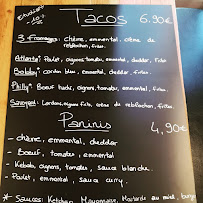 Etudiant
-10%
Tacos 6.90€
3 Fromages: chèvre, emmental, crème de
reblochon, frites.
Atlanta: Poulet, oignons, tomates, emmental, cheddar, frites.
Bobby: Cordon bleu, emmental, cheddar, frites.
Philly: Boeuf haché, oignons, tomates, emmental, frites.
Savoyard: Lardons, oignons frits, crème de reblochon, frites.
Paninis 4,90€
- chèvre, emmental, cheddar
- Boeuf, tomates, emmental
- Kebab, oignons, tomates, sauce blanche
- Poulet, emmental, sauce curry
* Sauces: Ketchup, Mayonnaise, Moutarde au miel, burger